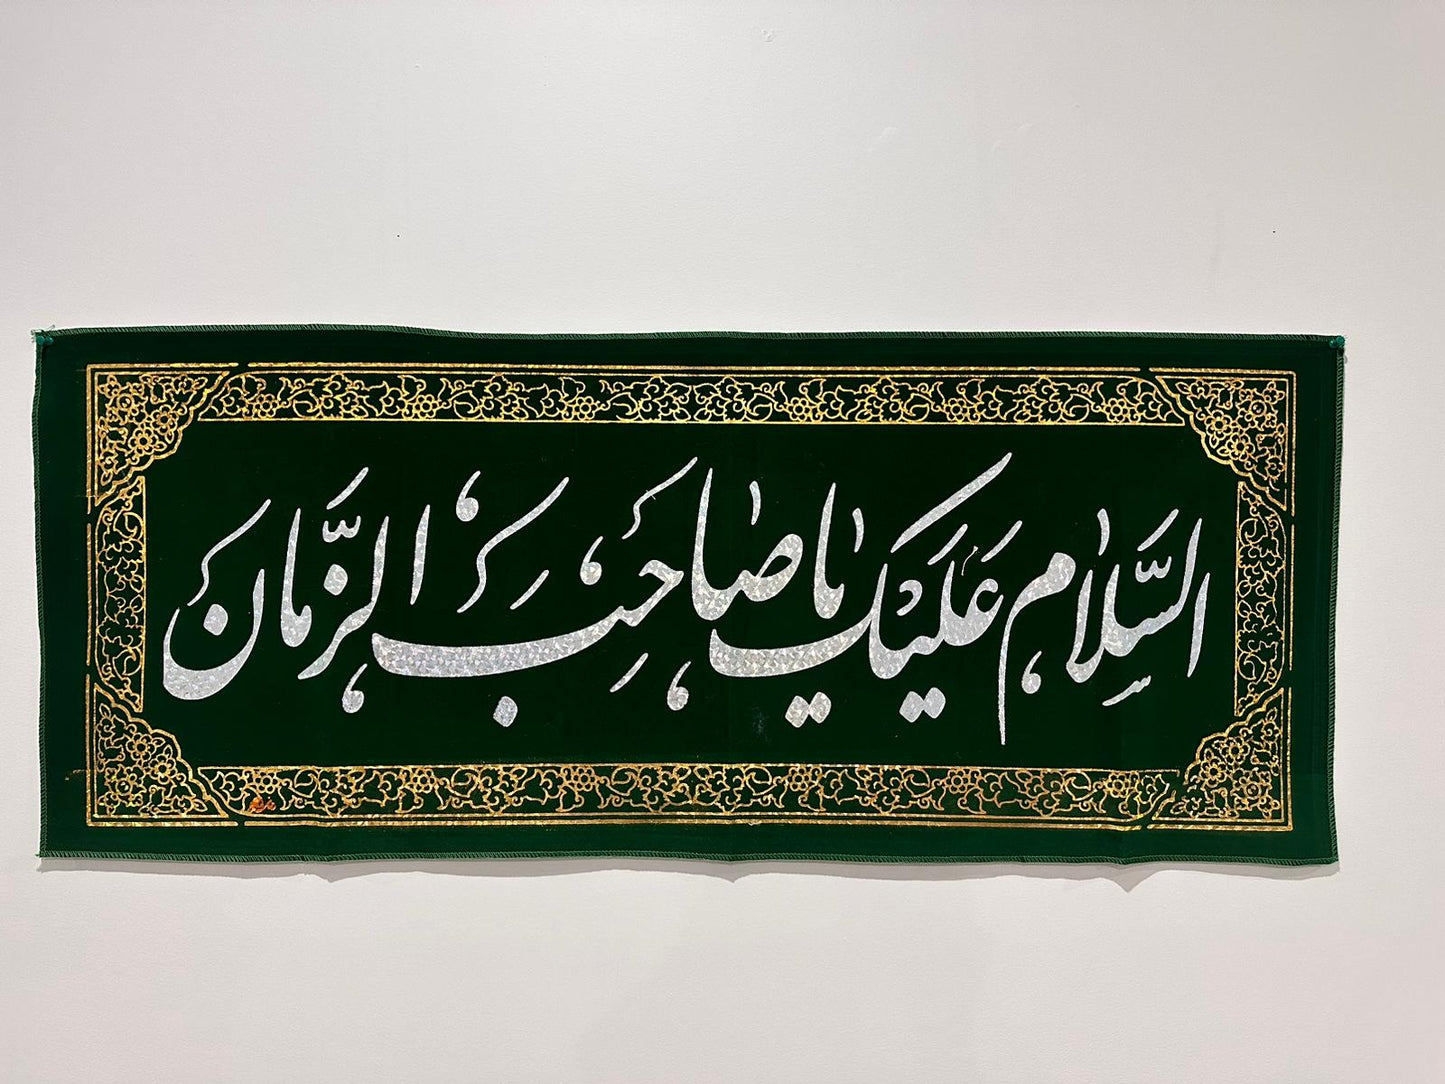 السَّلامُ عَلَيْكَ يا صاحِبَ الزَّمانْ